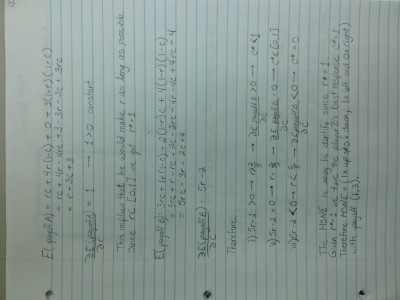 E(payoff A) = rc + 4r(1-c) + 0 + 3(1-r)(1-c)
= rc + 4r - 4rc + 3 - 3r - 3c + 3rc
= r - 3c + 3
∂E(payoff A) = 1 → 1>0 constant
∂r
This implies that he would make r as long as possible.
Since r∈[0,1] we get r*=1
E(payoff B) = 3rc + r(1-c) + 2(1-r)c + 4(1-r)(1-c)
= 5rc - 3r - 2c + 4
∂E(payoff B) = 5r - 2
∂c
Therefore,
i) 5r-2 > 0 → r > 2/5 → ∂E(payoff B) > 0 → c* = 1
∂c
ii) 5r-2 = 0 → r = 2/5 → ∂E(payoff B) = 0 → c* ∈ [0,1]
∂c
iii) 5r-2 < 0 → r < 2/5 → ∂E(payoff B) < 0 → c* = 0
∂c
The MSNE is easy to identify since r* = 1.
Given r*=1 we take the player B's best response c*=1
Therefore MSNE = (1x up and 0x down, 1x left and 0x right)
with payoff (1,3).